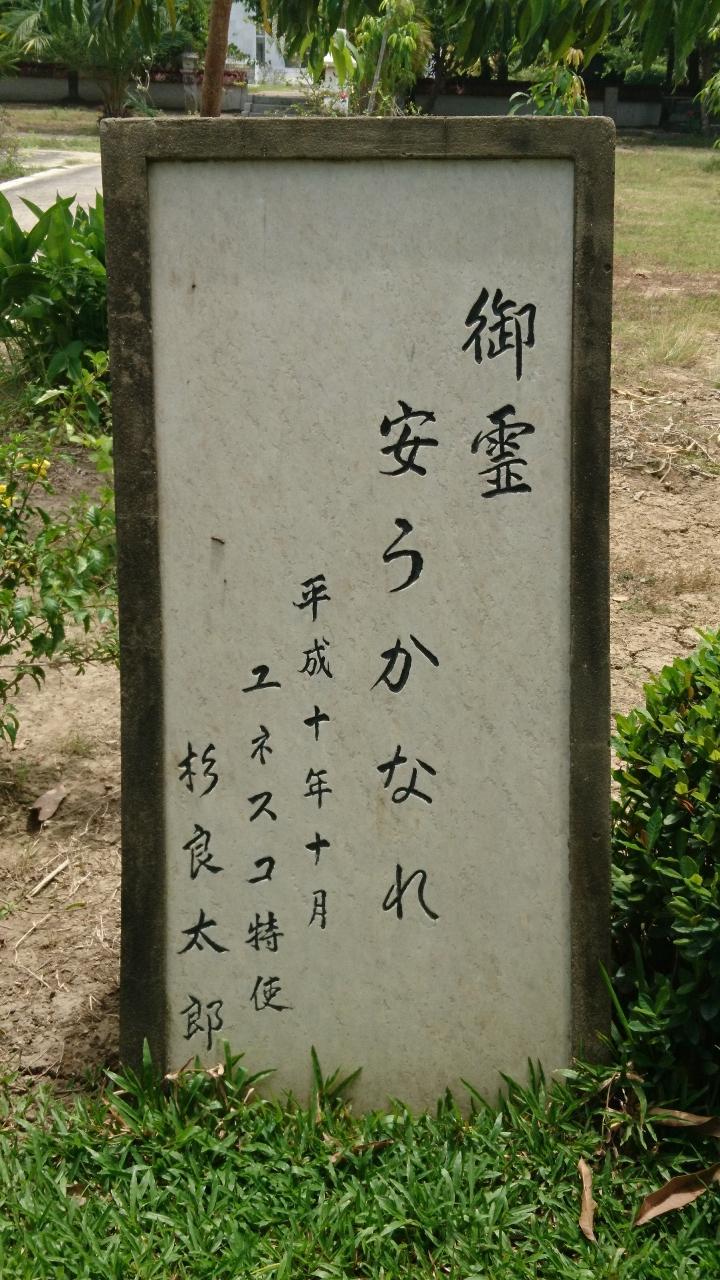 御霊
安うかなれ
平成十年十月
ユネスコ特使
杉良太郎